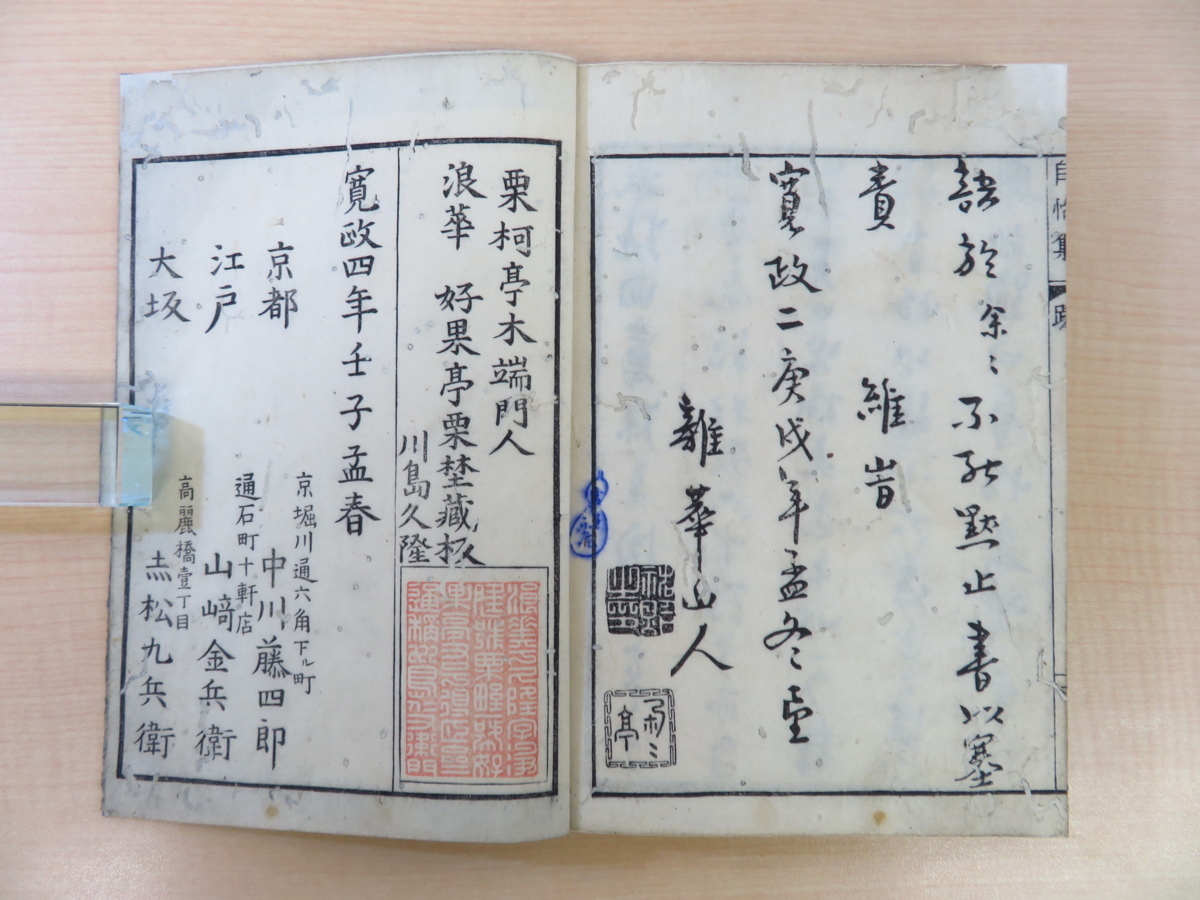 自怡集 跋
語於余〻不能默止書以塞
責
維旹
寛政二庚戌年孟冬望
離華山人
栗柯亭木端門人
浪華 好果亭栗埜藏板
川島久隆
寛政四年壬子孟春
京堀川通六角下ル町
京都 中川藤四郎
通石町十軒店
江戸 山﨑金兵衛
高麗橋壹丁目
大坂 赤松九兵衛